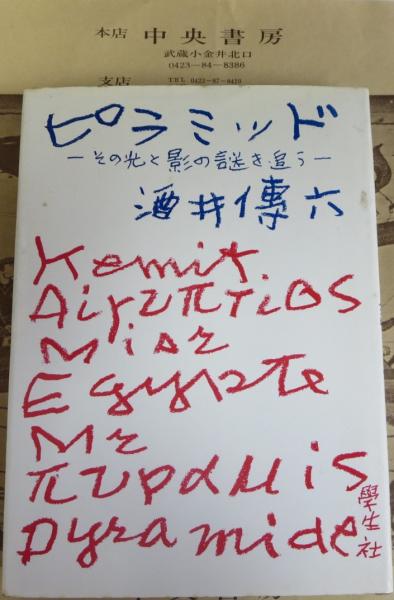 本店 中央書房
武蔵小金井北口
0423―84―8386
支店 TEL 0422―87―8420
ピラミッド
―その光と影の謎を追う―
酒井傳六
Kemit
Aἰγυπτιος
Misr
Egypte
Mr
πυραμις
Pyramide
學生社